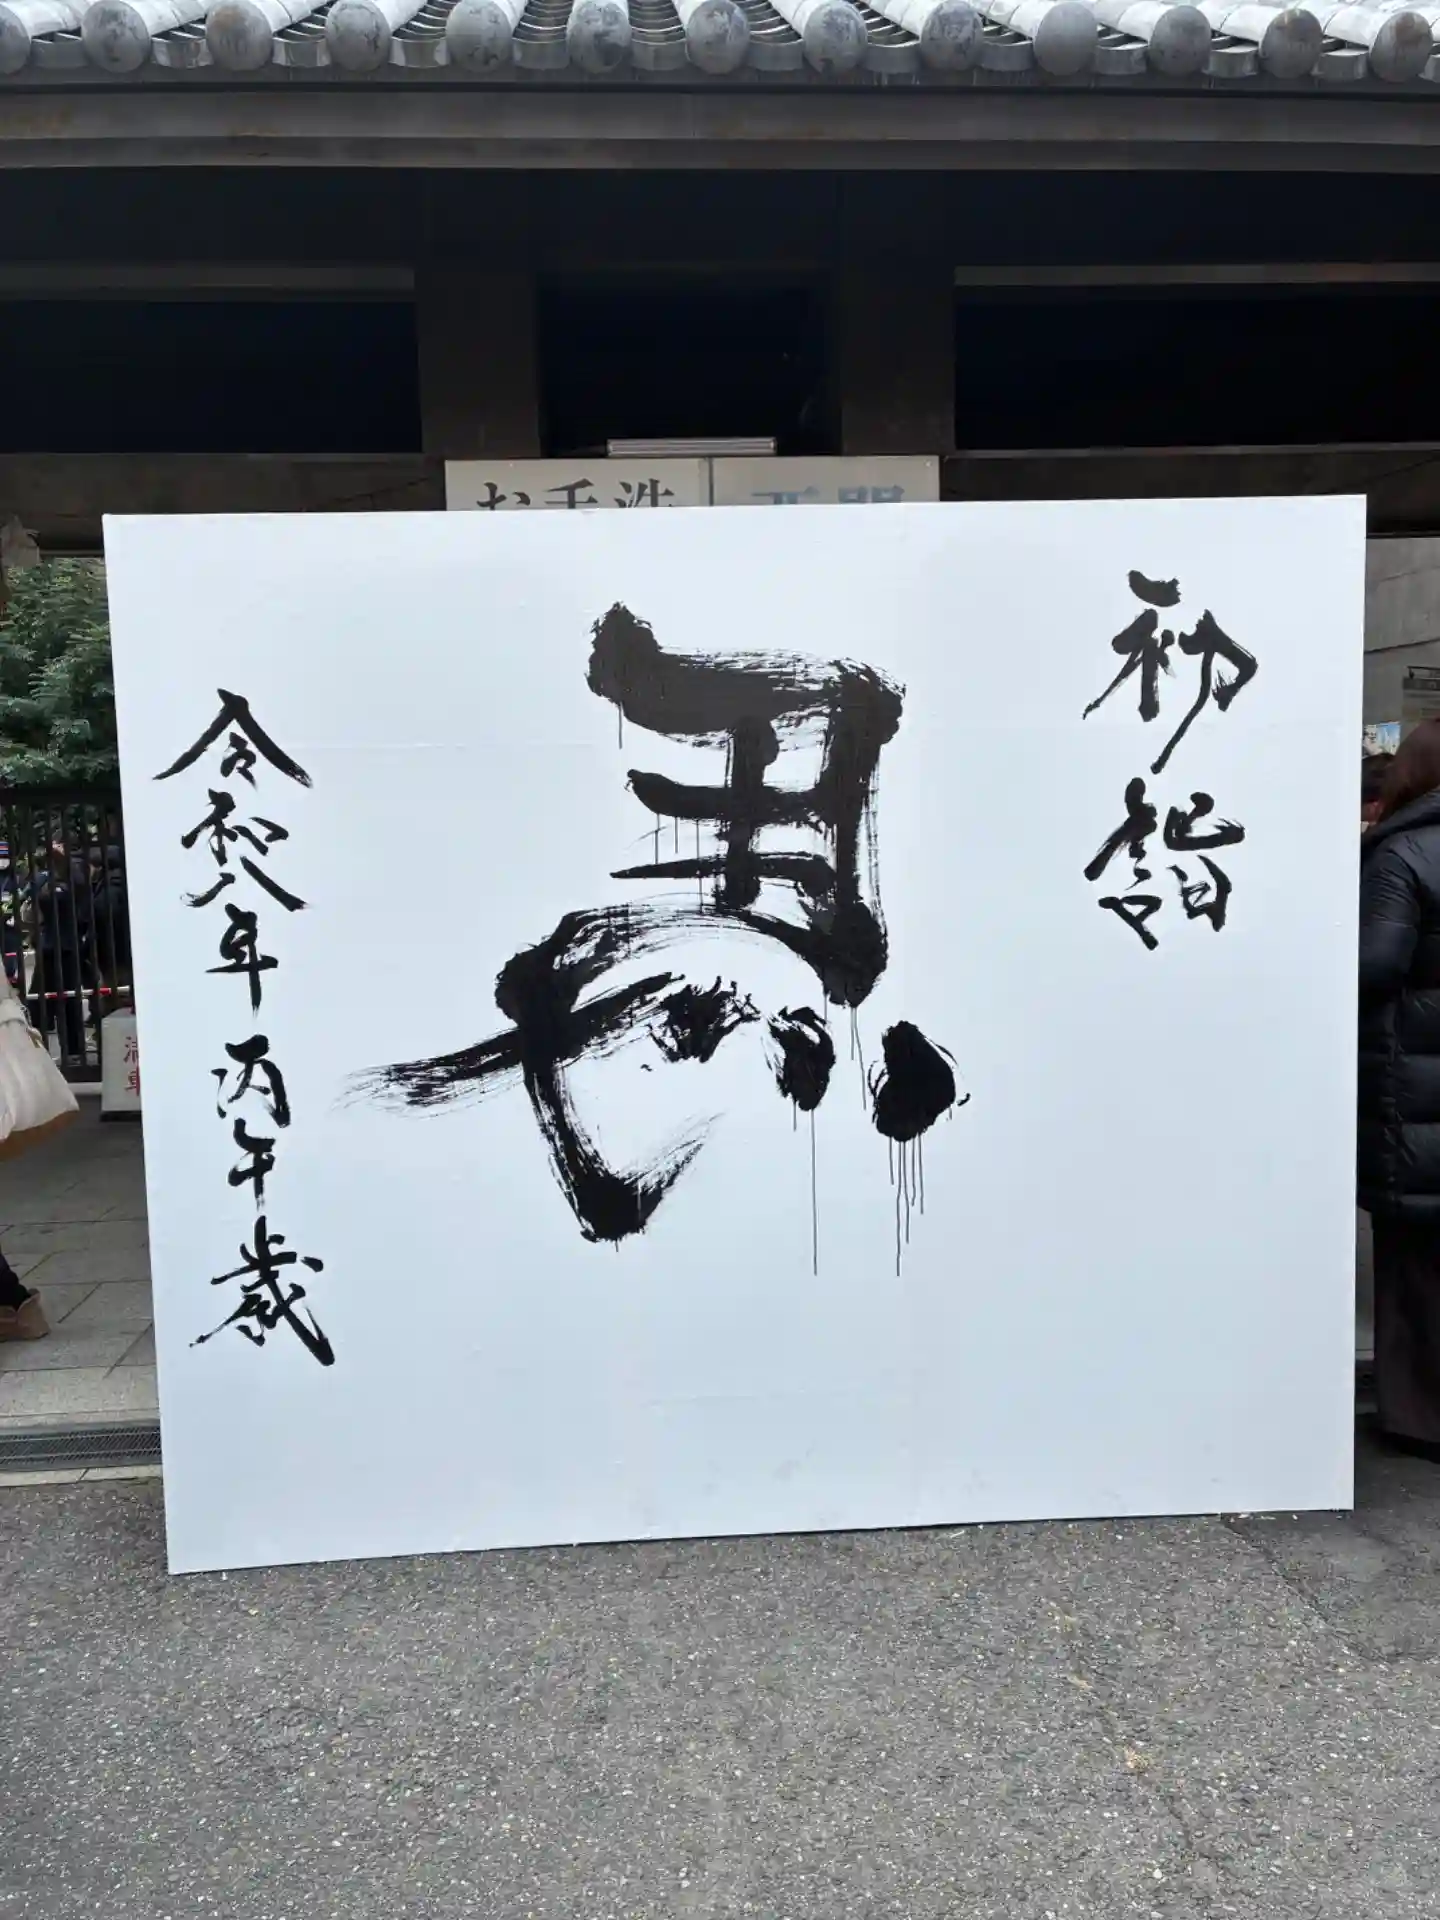 お手洗
初詣
馬
令和八年 丙午歳